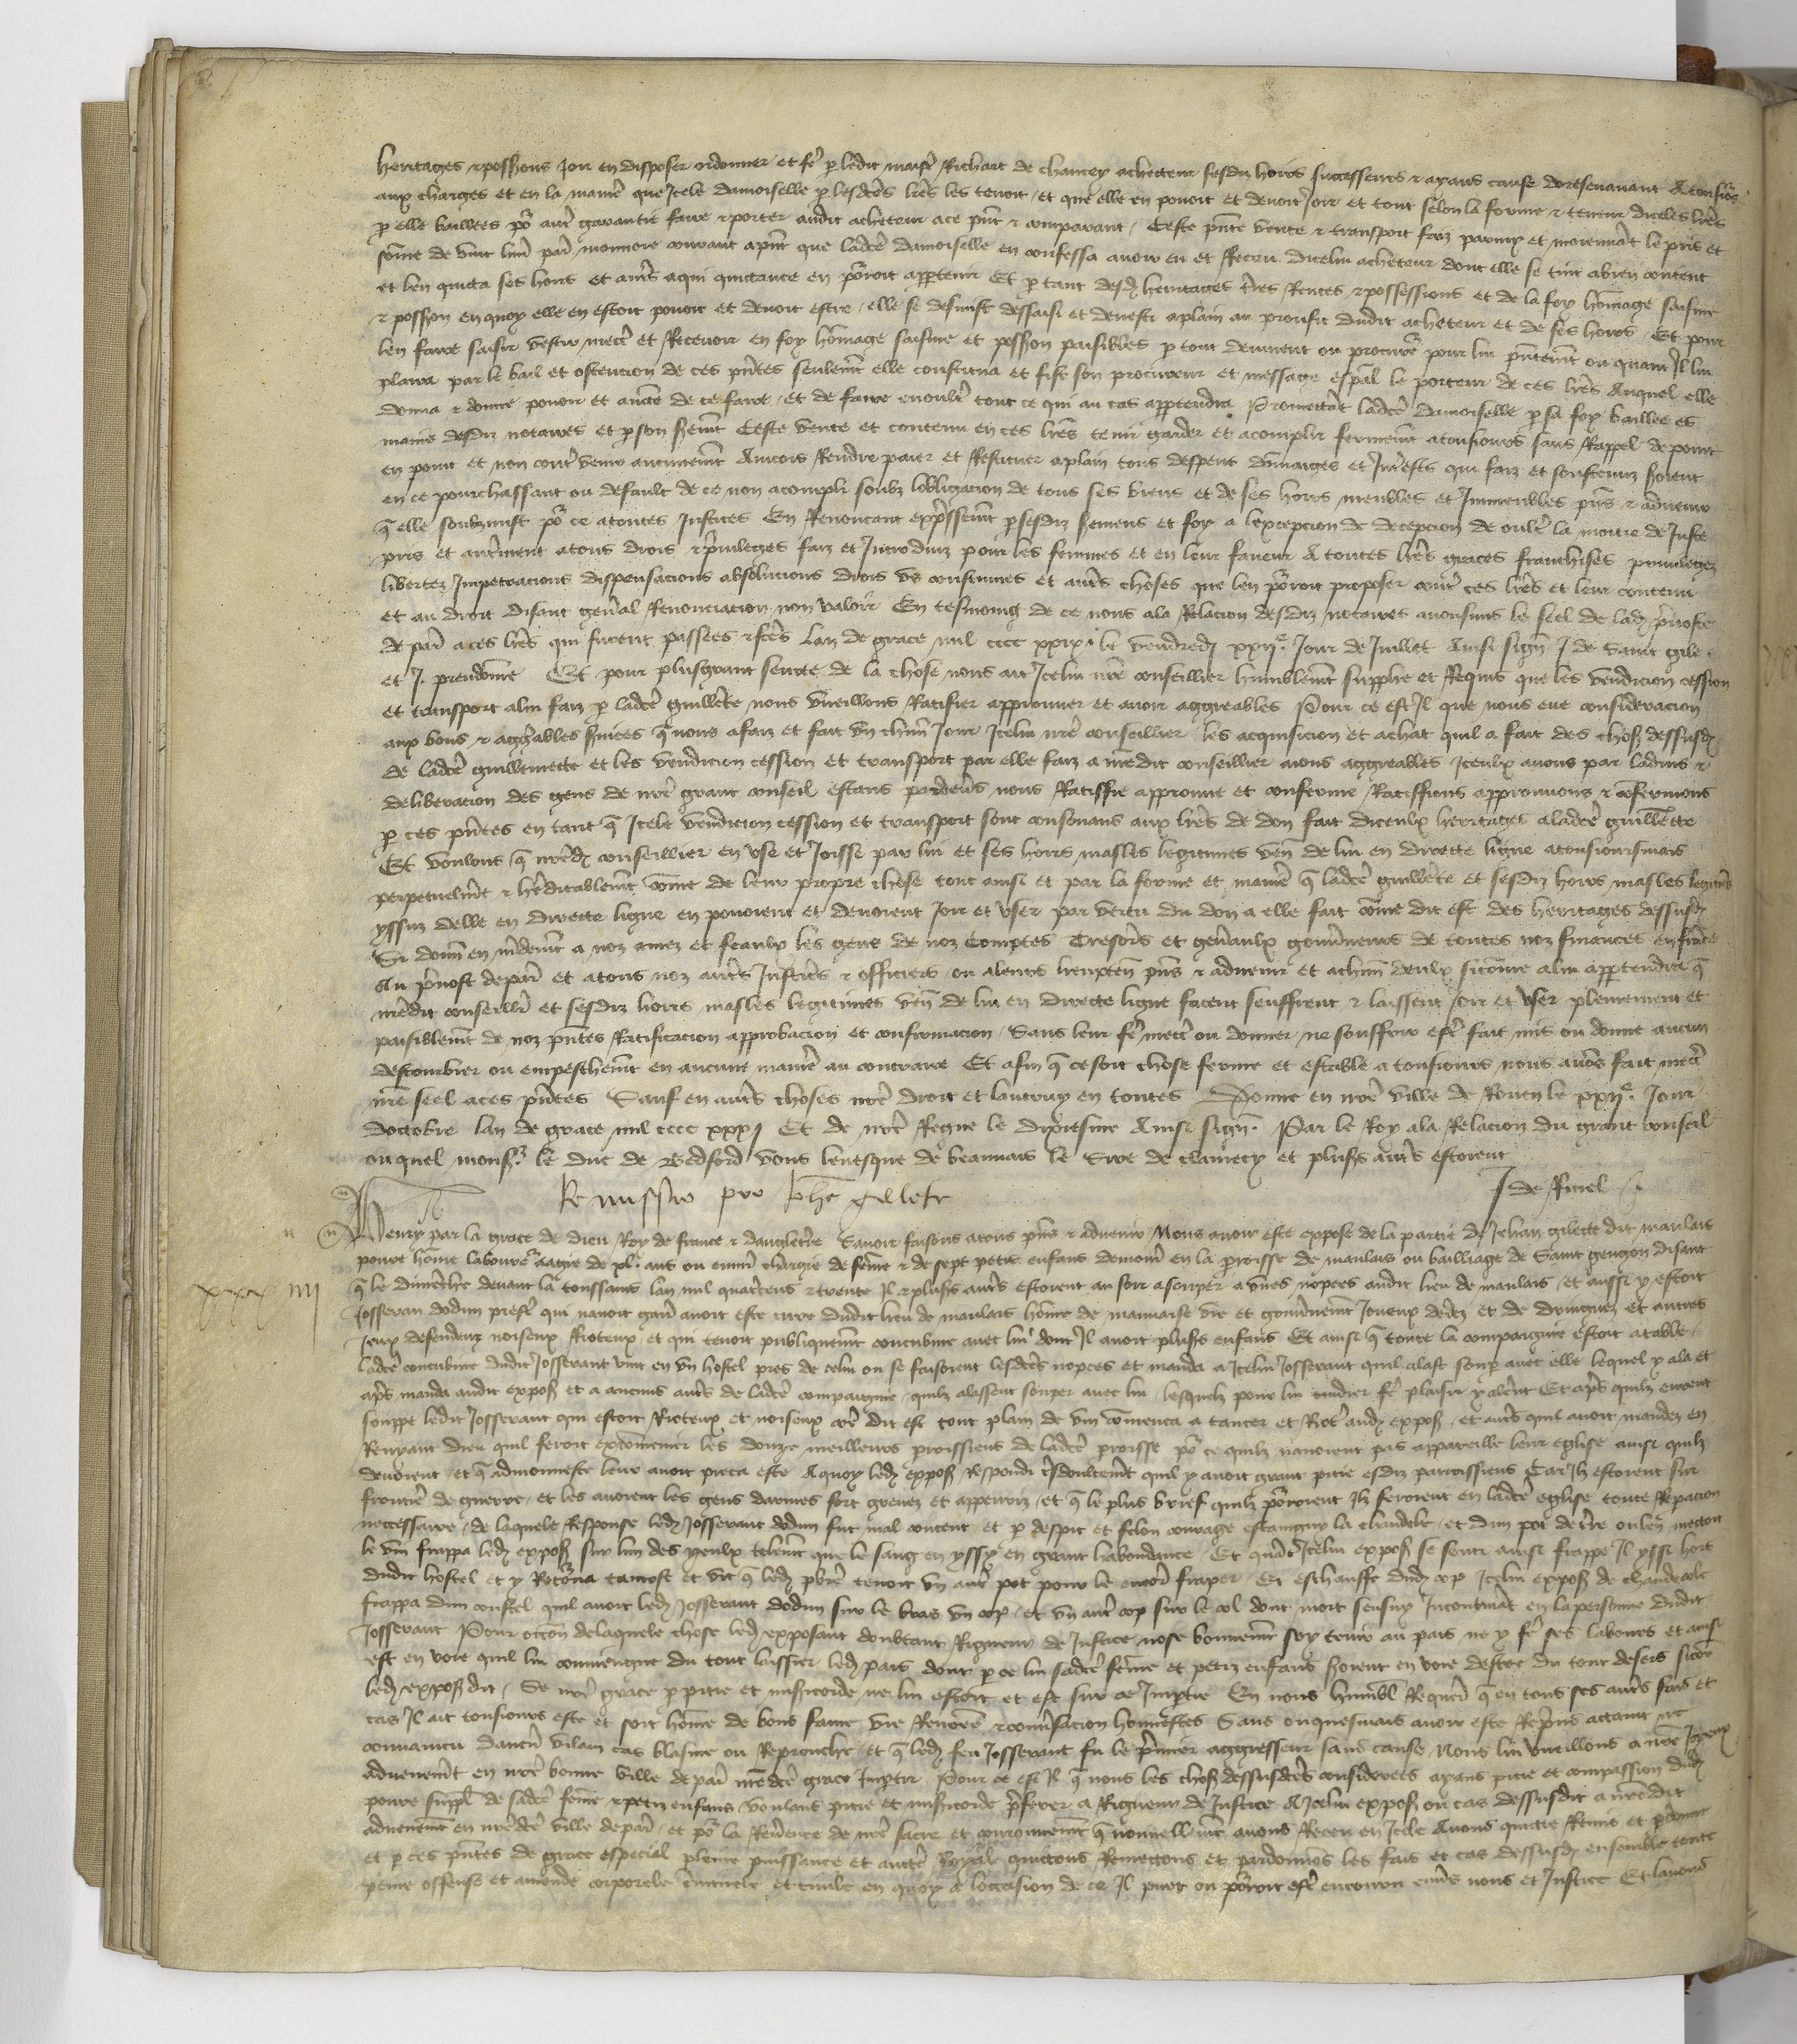 heritages & possons joir en disposer ordonner et fe p ledit maist Richart de chancey achetteur sesdiz hoirs successeurs & ayans cause doresenavant A tousiours
aux charges et en la manie que Icele damoiselle p lesdces lres les tenoit et que elle en povoit et devoit joir et tout selon la forme & teneur diceles lres
p elle baillees po aut garantie faire & porter audit acheteur ace pnt & comparant Ceste pnte vente & transport faiz parmy et moiennat le pris et
some de vint livr par monnoie courant apnt que ladce damoiselle en confessa avoir eu et Receu dicelui acheteur dont elle se tint abien content
et len quicta ses hoirs et autres aqui quictance en porroit appartenir Et p tant desd heritages tres Rentes & possessions et de la foy homage saisine
& posson en quoy elle en estoit povoit et devoit estre elle se desmist dessaisi et devesti aplain au proufit dudit acheteur et de ses hoirs Et pour
len faire saisir vestir mectre et Recevoir en foy homage saisine et posson paisibles p tout deuement ou procure pour lui pntemt ou quant Il lui
plaira par le bail et ostencion de ces pntes seulemt elle constitua et fist son procureur et message espal le porteur de ces lres Auquel elle
donna & donne povoir et aucte de ce faire et de faire enoultre tout ce qui au cas appartendra Promettat ladce damoiselle p sa foy baillee es
mains desdiz notaires et p son sermt Ceste vente et contenu en ces lres tenir garder et acomplir fermemt atousiours sans Rappel de point
en point et non contrevenir aucunemt Aincois Rendre paier et Restituer aplain tous despens dommages et Interests qui faiz et soustenuz seroient
en ce pourchassant ou default de ce non acompli soubz lobligacion de tous ses biens et de ses hoirs meubles et Immeubles pns & advenir
q elle soubzmist po ce atoutes Justices En Renoncant expssemt p sesdiz sermens et foy a lexcepcion de decepcion de oultre la moitie de Juste
pris et autrement atous drois & privileges faiz et Introduiz pour les femmes et en leur faveur A toutes lres graces franchises privileges
libertez Impetracions dispensacions absolucions drois us coustumes et autres choses que len porroit proposer contre ces lres et leur contenu
et au droit disant genal Renonciacion non valoir En tesmoing de ce nous ala Relacion desdiz notaires avons mis le seel de lad prevoste
de par a ces lres qui furent passees & fces Lan de grace mil cccc xxix le vendredi xxije Jour de Juillet Ainsi sign J de Saint gile
et J. preudome Et pour plusgrant seurte de la chose nous ait Icelui nre conseillier humblemt supplie et Requis que les vendicion cession
et transport alui faiz p ladce guillete nous vueillons Ratifier approuver et avoir aggreables Pour ce est Il que nous eue consideracion
aux bons & aggables services q nous afaiz et fait un chun Jour Icelui nre conseillier les acquisicion et achat quil a fait des choses dessusd
de ladce guillemette et les vendicion cession et transport par elle faiz a nredit conseillier aions aggreables Iceulx avons par ladvis &
deliberacion des gens de nre grant conseil estans pardevs nous Ratiffie approuve et conferme Ratiffions approuvons & cofermons
p ces pntes en tant q Icele vendicion cession et transport sont consonans aux lres de don fait diceulx heritages aladce guillette
Et voulons q nredit conseillier en use et Joisse par lui et ses hoirs masles legitimes venz de lui en directe ligne atousioursmais
perpetuelmt & heditablemt come de leur propre chose tout ainsi et par la forme et manie q ladce guillete et sesdiz hoirs masles legitimes
yssuz delle en directe ligne en povoient et devoient Joir et user par vertu du don a elle fait come dit est des heritages dessusd
Si donn en mdemt a noz amez et feaulx les gens de noz Comptes Tresors et genaulx gouvneurs de toutes noz finances en france
Au prevost depar et atous noz autres Justices & officiers ou aleurs lieuxten pns & advenir et achun deulx sicome alui appartendra q
nredit conseillier et sesdiz hoirs masles legitimes venz de lui en directe ligne facent seuffrent & laissent Joir et user plenement et
paisiblemt de noz pntes Ratificacion approbacion et confirmacion Sans leur fe mectre ou donner ne souffrir estre fait mis ou donne aucun
destourbier ou empeschemt en aucune manie au contraire Et afin q cesoit chose ferme et estable a tousiours nous avos fait mectre
nre seel aces pntes Sauf en autres choses nre droit et lautruy en toutes Donne en nre ville de Rouen le xxije Jour
doctobre lan de grace mil cccc xxxj Et de nre Regne le dixiesme Ainsi sign Par le Roy ala Relacion du grant conseil
ouquel mons le duc de Bedford vous levesque de beauvais le Sire de clamecy et plusrs autres estoient
Remissio pro Johe gilete J de Rinel
Henry par la grace de dieu Roy de france & dangleterre Savoir faisons atous pns & advenir Nous avoir este expose de la partie de Jehan gilette dit maulais
povre home laboure aagie de pl. ans ou environ chargie de feme & de sept petiz enfans demour en la proisse de maulais ou bailliage de Saint gengon disant
xxx iiij q le dimenche devant la toussains lan mil quatcens & trente Il & plusrs autres estoient au soir asouper a unes nopces audit lieu de maulais et aussi y estoit
Josseran dodun prestre qui navoit gaires avoit este cure dudit lieu de maulais home de mauvaise vie et gouvnemt Joueux de dez et de bringuez et autres
Jeux defenduz noiseux Rioteux et qui tenoit publiquemt concubine avec lui dont Il avoit plusrs enfans Et ainsi q toute la compaignie estoit atable
ladce concubine dudit Josserant vint en un hostel pres de celui ou se faisoient lesdces nopces et manda a Icelui Josserant quil alast souper avec elle lequel y ala et
aprs manda audit expos et a aucuns autres de ladce compaignie quilz alassent souper avec lui lesquelz pour lui cuidier fe plaisir y alent Et aprs quilz eurent
souppe ledit Josserant qui estoit Rioteux et noiseux come dit est tout plain de vin comenca a tancer et Riot aud expos et autres quil avoit mandez en
Renyant dieu quil feroit excomenier les douze meilleurs proissiens de ladce proisse po ce quilz navoient pas appareille leur eglise ainsi quilz
devoient et q admonneste leur avoit pieca este Aquoy led expos Respondi tresdoulcemt quil y avoit grant pitie esdiz parroissiens Car Ilz estoient sur
frontie de guerre et les avoient les gens darmes fort grevez et appovriz et q le plus brief quilz porroient Ilz feroient en ladce eglise toute Repacion
neccessaire de laquele Response led Josserant dodun fut mal content et p despit et felon courage estaingny la chandelle et dun pot de tre ou len mectoit
le vin frappa led expos sur lun des yeulx telemt que le sang en yssy en grant habondance Et quat Icelui expos se senti ainsi frappe Il yssi hors
dudit hostel et y Retorna tantost et vit q led pbre tenoit un autre pot pour le encore fraper Et eschauffe dud cop Icelui expos de chaudecole
frappa dun coustel quil avoit led Josserant dodun sur le bras un cop et un autre cop sur le col dont mort sensuy Incontinat en lapersonne dudit
Josserant Pour occon delaquele chose led exposant doubtant Rigueur de Justice nose bonnemt soy tenir au pais ne y fe ses labours et ainsi
est en voie quil lui conviengne du tout laissier led pais dont p ce lui sadce feme et petiz enfans seroient en voie destre du tout desers sicoe
led expos dit Se nre grace p pitie et misicorde ne lui estoit et est sur ce Imptie En nous humbl Requerant q en tous ses autres fais et
cas Il ait tousiours este et soit home de bone fame vie Renomee & convsacion honnestes Sans onquesmais avoir este Reprins actaint ne
convaincu daucun vilain cas blasme ou Reprouche et q led feu Josserant fu le premier aggresseur sans cause Nous lui vueillons a nre Joyeux
advenemt en nre bonne ville de par nredce grace Imptir Pour ce est Il q nous les choses dessusdces considerees ayans pitie et compassion dud
povre suppl de sadce feme & petiz enfans voulans pitie et misicorde preferer a Rigueur de Justice A Icelui expos ou cas dessusdit a nredit
advenemt en nredce ville depar et po la Reverence de nre sacre et couronnemt q nouvellemt avons Receu en Icele Avons quictie Remis et pardonne
et p ces pntes de grace especial pleine puissance et aucte Royale quictons Remectons et pardonnons les fais et cas dessusd ensemble toute
peine offense et amende corporele criminele et civile en quoy a loccasion de ce Il puet ou porroit estre encouru envers nous et Justice Et lavons